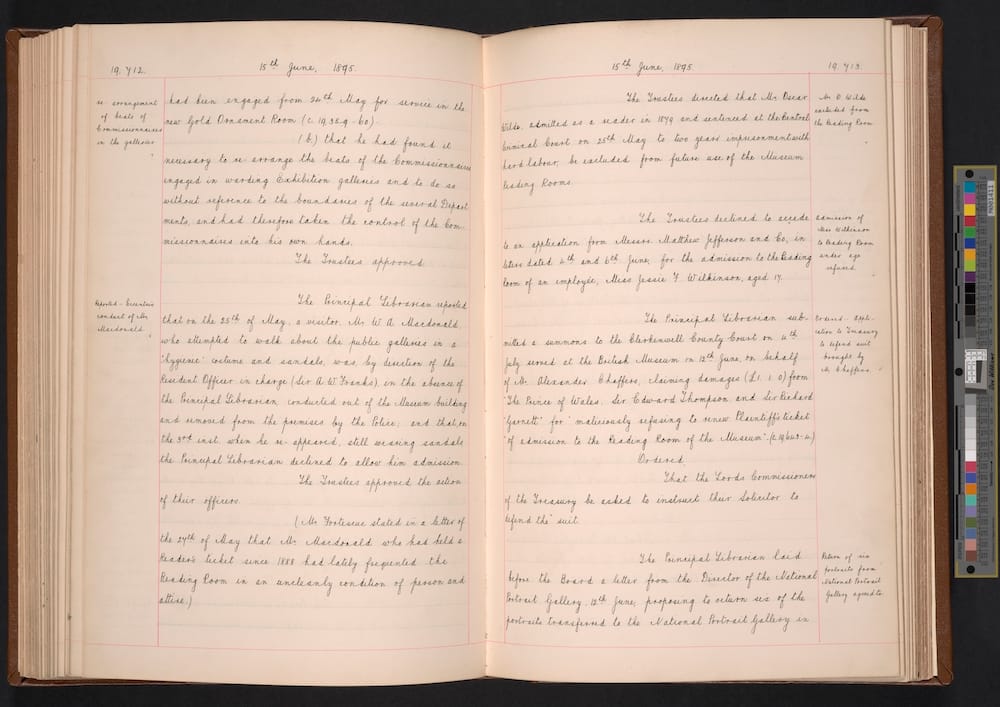 19,712.
15th June, 1895.
re-arrangement
of beats of
Commissionnaires
in the galleries
had been engaged from 24th May for service in the
new Gold Ornament Room (c. 19,389-60).
(b.) that he had found it
necessary to re-arrange the beats of the Commissionnaires
engaged in warding Exhibition galleries and to do so
without reference to the boundaries of the several Depart
ments, and had therefore taken the control of the Com-
missionnaires into his own hands.
The Trustees approved.
Reported - Eccentric
conduct of Mr
Macdonald
The Principal Librarian reported
that on the 25th of May, a visitor, Mr. W. A. Macdonald,
who attempted to walk about the public galleries in a
"hygienic" costume and sandals, was, by direction of the
Resident Officer in charge (Sir A. W. Franks), in the absence of
the Principal Librarian conducted out of the Museum building
and removed from the premises by the Police; and that, on
the 3rd inst. when he re-appeared, still wearing sandals
the Principal Librarian declined to allow him admission.
The Trustees approved the action
of their officers.
(Mr. Fortescue stated in a letter of
the 27th of May that Mr. Macdonald who had held a
Reader's ticket since 1888 had lately frequented the
Reading Room in an uncleanly condition of person and
attire.)
15th June, 1895.
19,713.
The Trustees directed that Mr. Oscar
Wilde, admitted as a reader in 1879 and sentenced at the Central
Criminal Court on 25th May to two years imprisonment with
hard labour, be excluded from future use of the Museum
Reading Rooms.
Mr. O. Wilde
excluded from
the Reading Room
The Trustees declined to accede
to an application from Messrs. Matthew Jefferson and Co, in
letters dated 4th and 6th June, for the admission to the Reading
Room of an employee, Miss Jessie F. Wilkinson, aged 17.
Admission of
Miss Wilkinson
to Reading Room
under age
refused.
The Principal Librarian sub-
mitted a summons to the Clerkenwell County Court on 4th
July served at the British Museum on 12th June, on behalf
of Mr. Alexander Chaffers, claiming damages (£1. 1. 0) from
"The Prince of Wales, Sir Edward Thompson, and Sir Richard
"Garnett" for "maliciously refusing to renew Plaintiff's ticket
"of admission to the Reading Room of the Museum".
Ordered
That the Lords Commissioners
of the Treasury be asked to instruct their Solicitor to
defend the suit.
Ordered - Appli-
cation to Treasury
to defend suit
brought by
Mr Chaffers.
The Principal Librarian laid
before the Board a letter from the Director of the National
Portrait Gallery, 12th June, proposing to return six of the
portraits transferred to the National Portrait Gallery in
Return of six
portraits from
National Portrait
Gallery agreed to